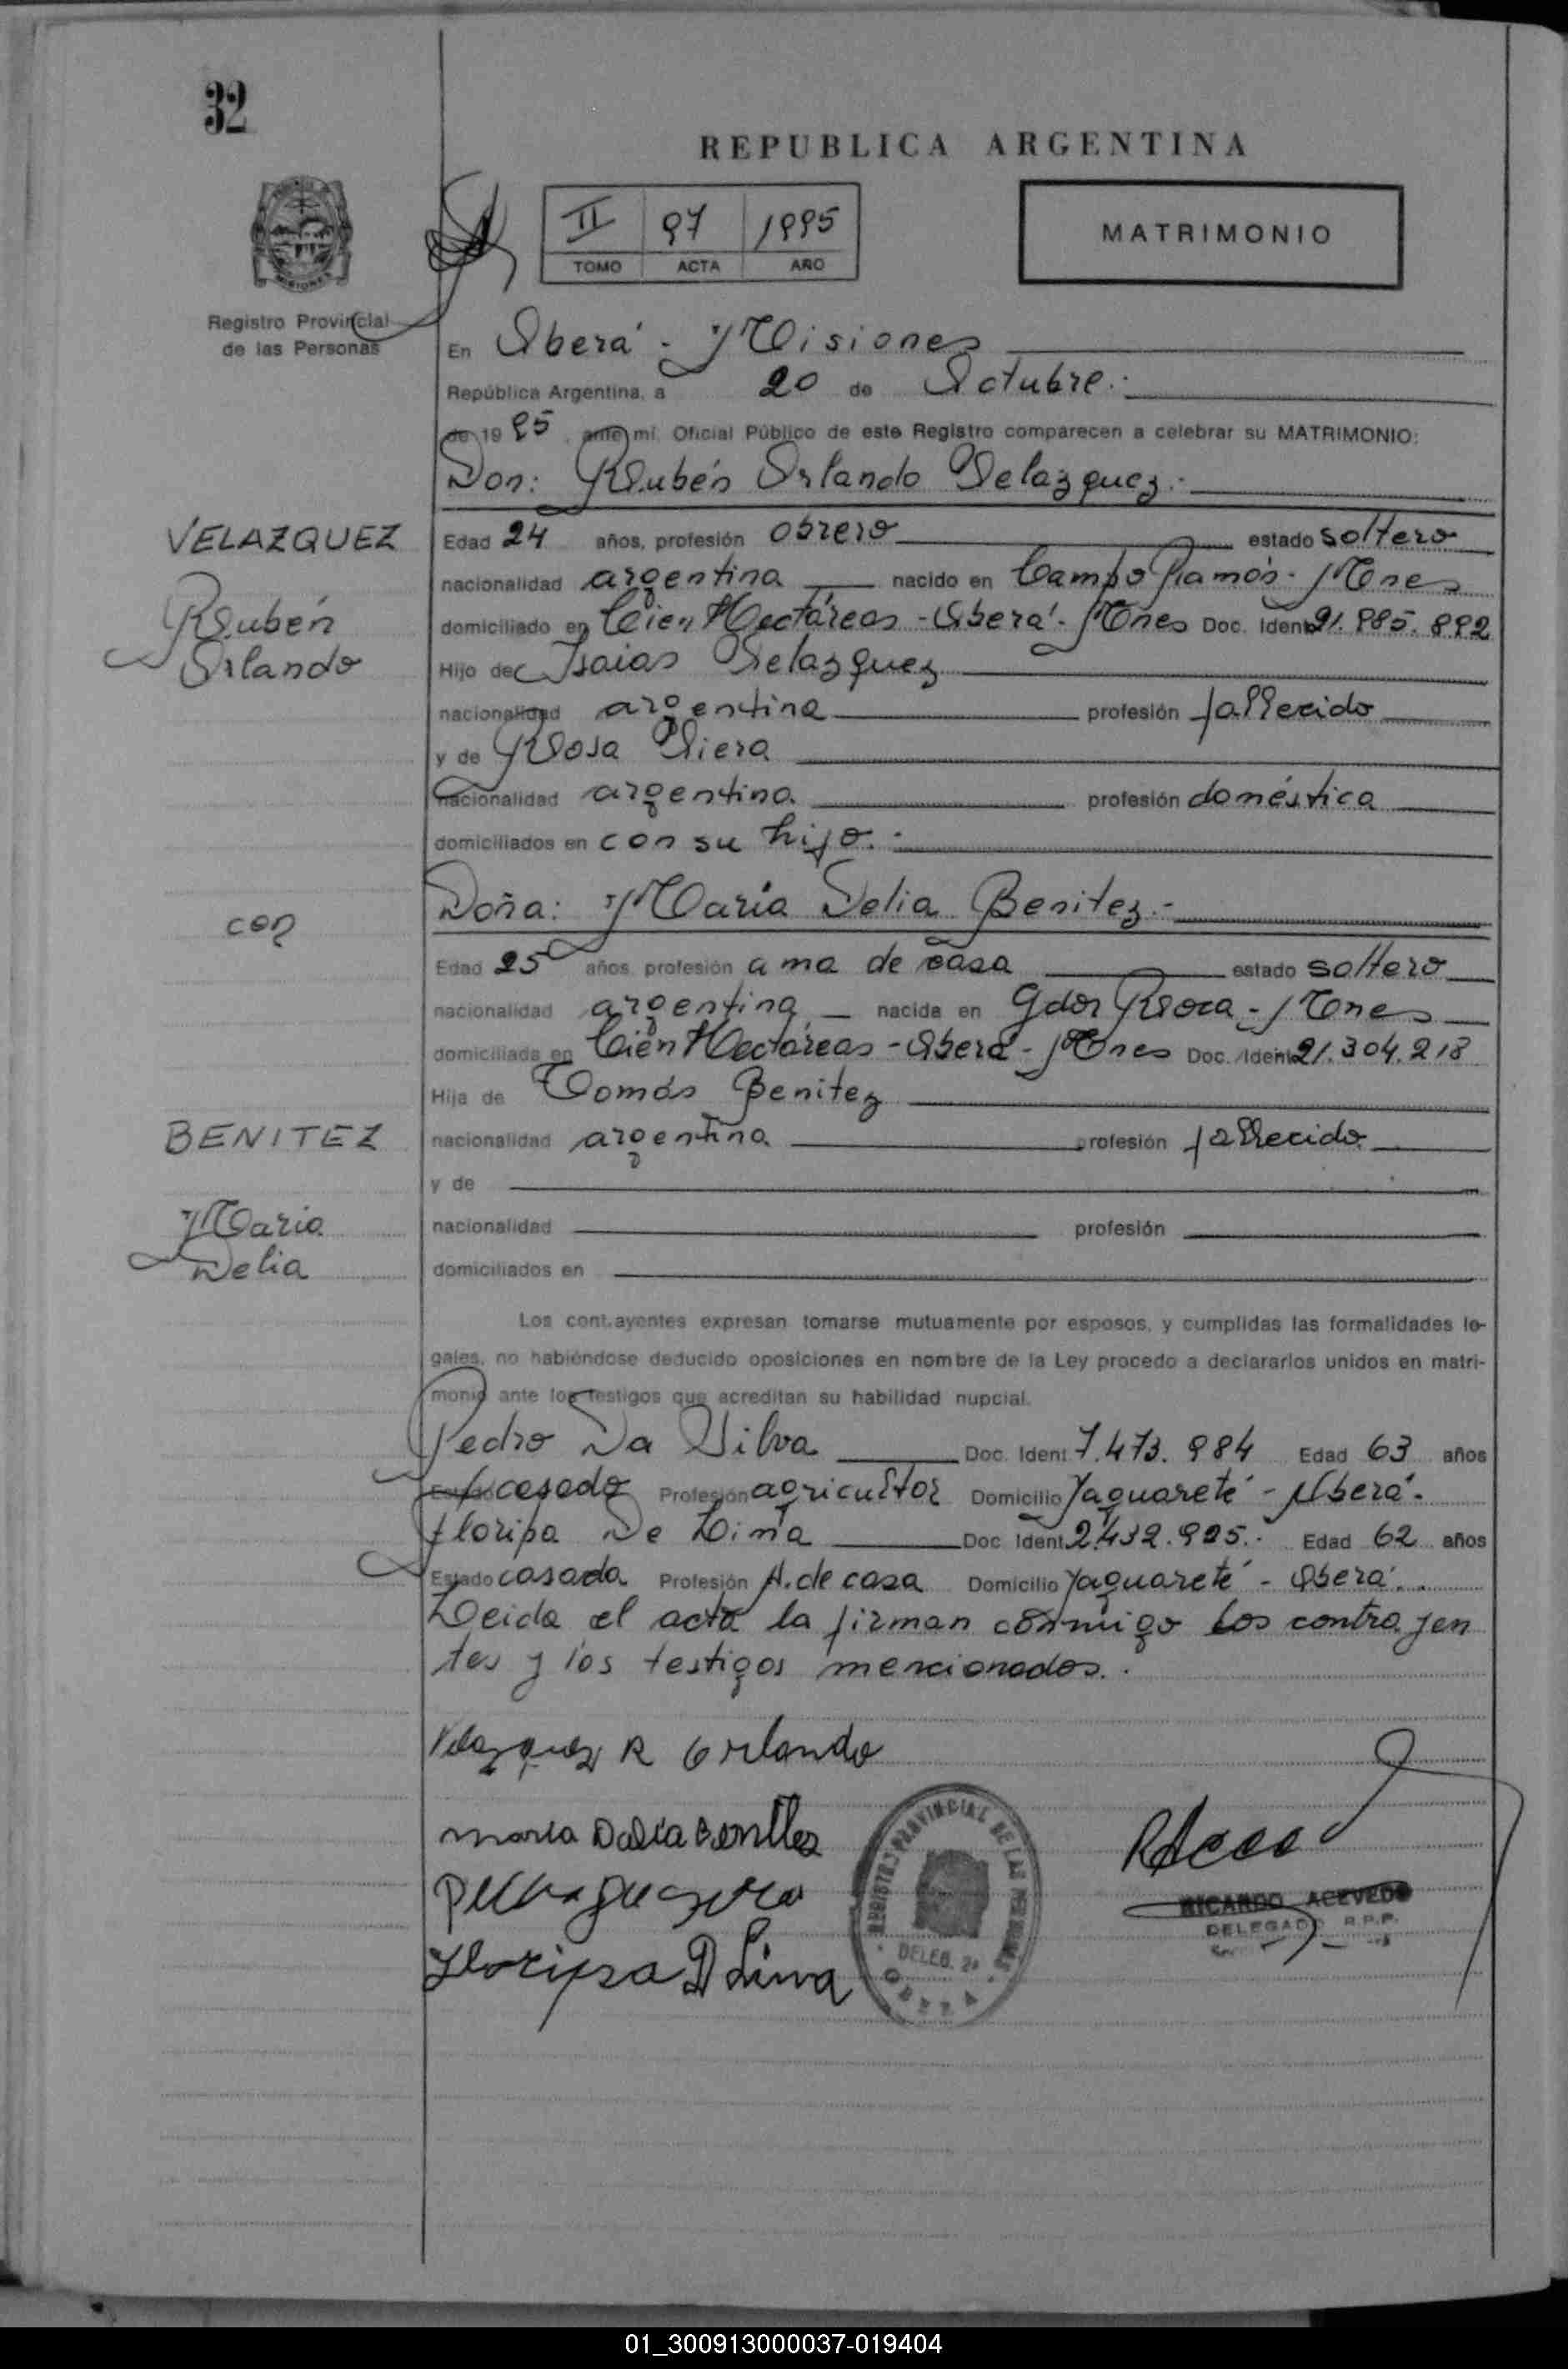 32
REPUBLICA ARGENTINA
II 97 1995
TOMO ACTA AÑO
MATRIMONIO
Registro Provincial
de las Personas
En Oberá - Misiones
República Argentina, a 20 de Octubre.-
de 1995, ante mí, Oficial Público de este Registro comparecen a celebrar su MATRIMONIO:
Don: Rubén Orlando Velazquez.-
VELAZQUEZ
Rubén
Orlando
Edad 24 años, profesión obrero estado soltero
nacionalidad argentina nacido en Campo Ramón - Mnes
domiciliado en Cien Hectáreas - Oberá - Mnes Doc. Ident. 21.985.892
Hijo de Isaias Velazquez
nacionalidad argentina profesión fallecido
y de Rosa Viera
nacionalidad argentina profesión doméstica
domiciliados en con su hijo.-
con
Doña: María Delia Benitez.-
Edad 25 años, profesión ama de casa estado soltero
nacionalidad argentina nacida en Gdor Roca - Mnes
domiciliada en Cien Hectáreas - Oberá - Mnes Doc. Ident. 21.304.218
Hija de Tomás Benitez
BENITEZ
María
Delia
nacionalidad argentina profesión fallecido
y de
nacionalidad profesión
domiciliados en
Los contrayentes expresan tomarse mutuamente por esposos, y cumplidas las formalidades le-
gales, no habiéndose deducido oposiciones en nombre de la Ley procedo a declararlos unidos en matri-
monio ante los testigos que acreditan su habilidad nupcial.
Pedro Da Silva Doc. Ident. 7.473.984 Edad 63 años
Estado casado Profesión agricultor Domicilio Yaguareté - Oberá.
Floripa De Lima Doc. Ident. 2.432.925.- Edad 62 años
Estado casada Profesión A. de casa Domicilio Yaguareté - Oberá.
Leida el acta la firman conmigo los contrayen
tes y los testigos mencionados.-
Velazquez R Orlando
María Delia Benitez
Floripa D Lima
REGISTRO PROVINCIAL DE LAS PERSONAS
DELEG. 2ª
OBERA
RICARDO ACEVEDO
DELEGADO R.P.P.
01_300913000037-019404